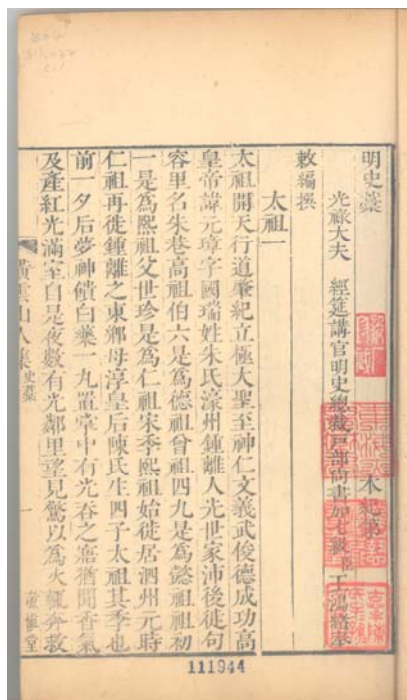 明史藁
本紀第一
光祿大夫 經筵講官明史總裁戶部尚書加七級臣王鴻緒奉
敕編撰
太祖一
太祖開天行道肇紀立極大聖至神仁文義武俊德成功高
皇帝諱元璋字國瑞姓朱氏濠州鍾離人先世家沛後徙句
容里名朱巷高祖伯六是為德祖曾祖四九是為懿祖祖初
一是為熙祖父世珍是為仁祖宋季熙祖始徙居泗州元時
仁祖再徙鍾離之東鄉母淳皇后陳氏生四子太祖其季也
前一夕后夢神饋白藥一丸置掌中有光吞之寤猶聞香氣
及產紅光滿室自是夜數有光鄰里望見驚以為火輒奔救
橫雲山人集
史藁
一
敬慎堂
111944